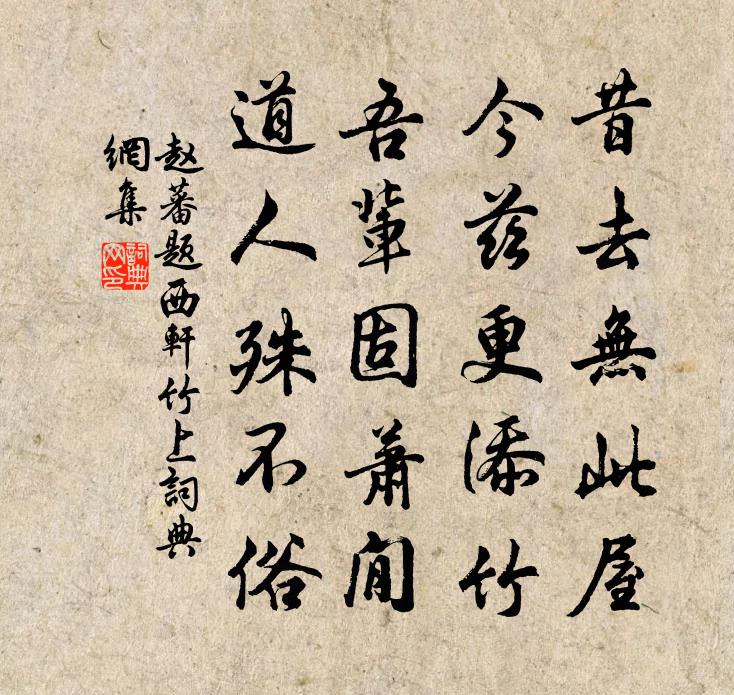 昔去無此屋
今茲更添竹
吾輩固蕭閒
道人殊不俗
赵蕃题西軒竹上詞典
網集
詞典
网印